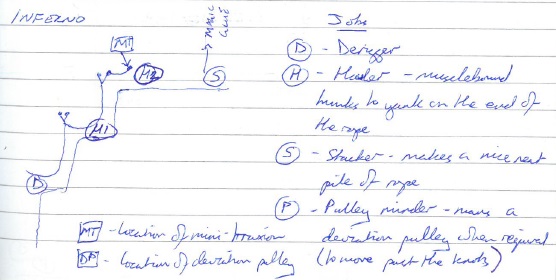 INFERNO
MAGIC
Jobs
MT
H2
S
H1
D
D - Derigger
H - Hauler - musclebound
hunks to yank on the end of
the rope
S - Stacker - makes a nice neat
pile of rope
P - Pulley minder - mans a
deviation pulley when required
(to move past the knots)
MT - location of mini-traxion
DP - location of deviation pulley